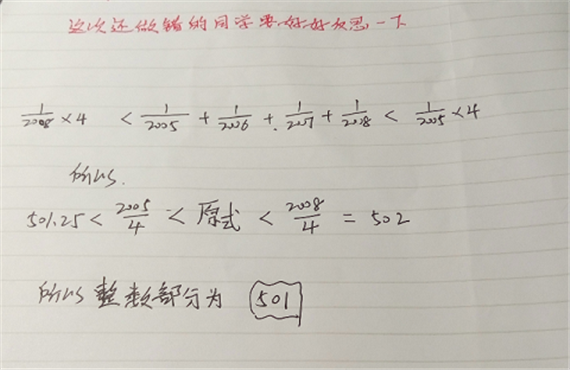 这次还做错的同学要好好反思一下
1/2008 ×4 < 1/2005 + 1/2006 + 1/2007 + 1/2008 < 1/2005 ×4
所以.
501.25 < 2005/4 < 原式 < 2008/4 = 502
所以整数部分为 501